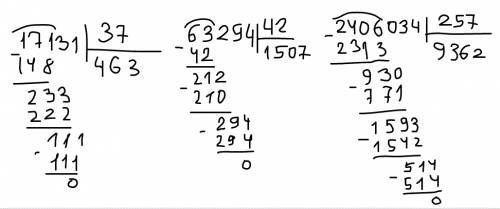 17131 37
- 148 463
233
- 222
111
- 111
0
- 63294 42
42 1507
212
- 210
- 294
294
0
- 2406034 257
2313 9362
930
- 771
1593
- 1542
514
- 514
0